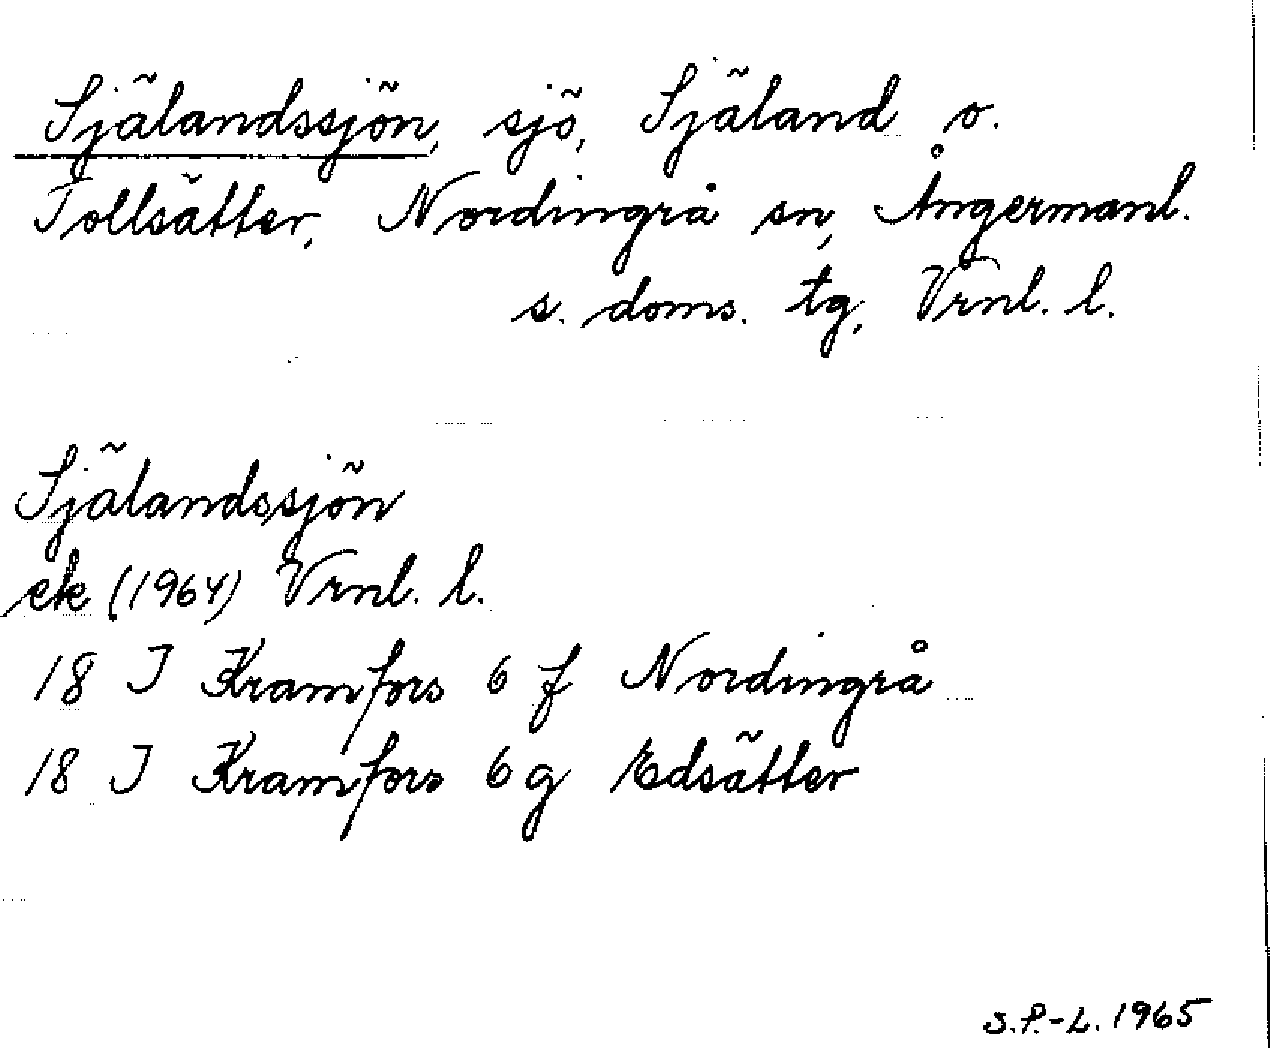 Själandssjön, sjö, Själand o.
Tollsätter, Nordingrå sn, Ångermanl.
s. doms. tg, Vrnl. l.
Själandssjön
ek (1964) Vrnl. l.
18 I Kramfors 6 f Nordingrå
18 I Kramfors 6 g Edsätter
S.P.-L. 1965